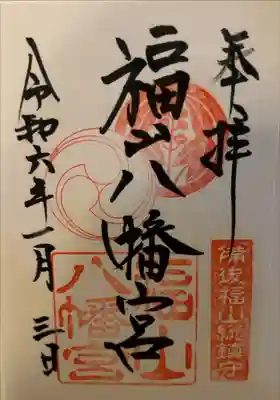 奉拝
備後福山総鎮守
福山八幡宮
福山
八幡宮
令和六年一月三日